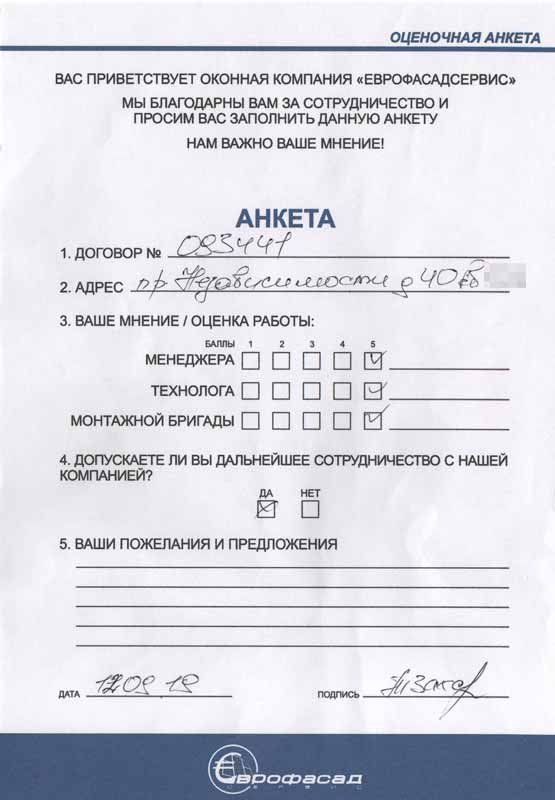 ОЦЕНОЧНАЯ АНКЕТА
ВАС ПРИВЕТСТВУЕТ ОКОННАЯ КОМПАНИЯ «ЕВРОФАСАДСЕРВИС»
МЫ БЛАГОДАРНЫ ВАМ ЗА СОТРУДНИЧЕСТВО И
ПРОСИМ ВАС ЗАПОЛНИТЬ ДАННУЮ АНКЕТУ
НАМ ВАЖНО ВАШЕ МНЕНИЕ!
АНКЕТА
1. ДОГОВОР № 093441
2. АДРЕС пр Независимости д 40
3. ВАШЕ МНЕНИЕ / ОЦЕНКА РАБОТЫ:
БАЛЛЫ 1 2 3 4 5
МЕНЕДЖЕРА
ТЕХНОЛОГА
МОНТАЖНОЙ БРИГАДЫ
4. ДОПУСКАЕТЕ ЛИ ВЫ ДАЛЬНЕЙШЕЕ СОТРУДНИЧЕСТВО С НАШЕЙ
КОМПАНИЕЙ?
ДА НЕТ
5. ВАШИ ПОЖЕЛАНИЯ И ПРЕДЛОЖЕНИЯ
ДАТА 12 09 18 ПОДПИСЬ
Єврофасад
СЕРВИС